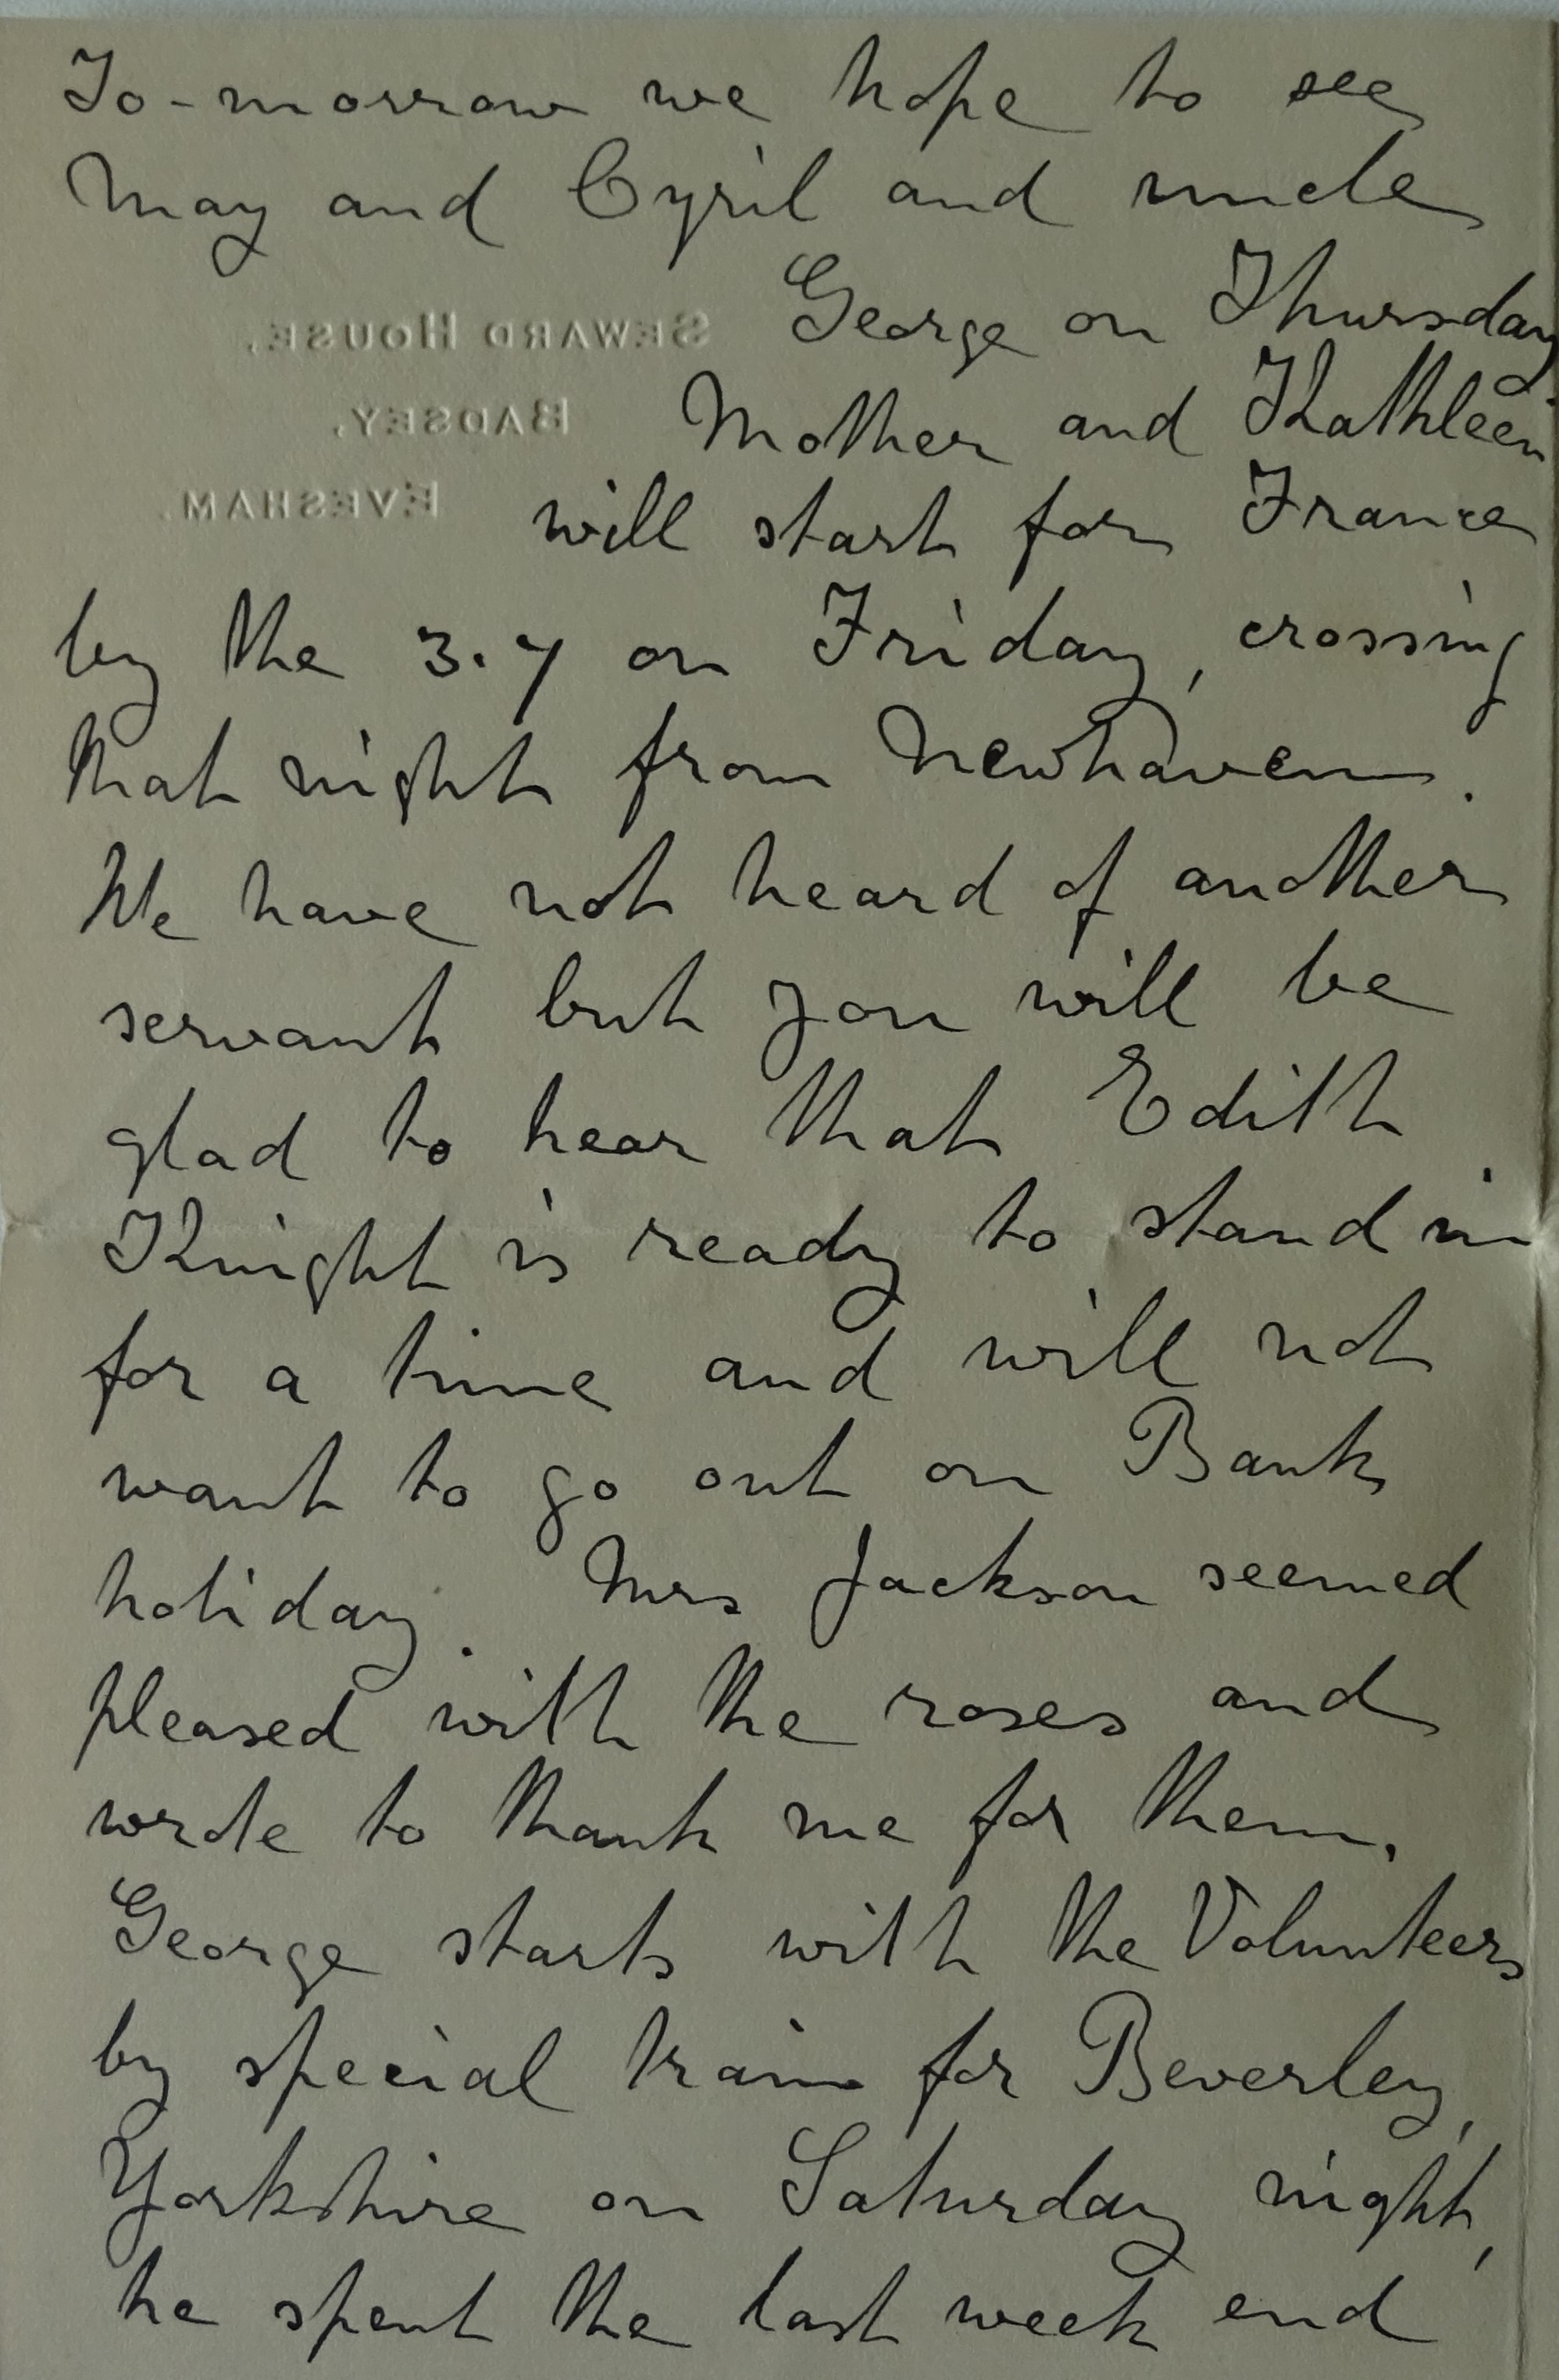 To-morrow we hope to see
May and Cyril and uncle
George on Thursday
SEWARD HOUSE,
Mother and Kathleen
BADSEY,
will start for France
EVESHAM.
by the 3.7 on Friday, crossing
that night from Newhaven.
We have not heard of another
servant but you will be
glad to hear that Edith
Knight is ready to stand in
for a time and will not
want to go out on Bank
holiday. Mrs Jackson seemed
pleased with the roses and
wrote to thank me for them.
George starts with the Volunteers
by special train for Beverley,
Yorkshire on Saturday night,
he spent the last week end